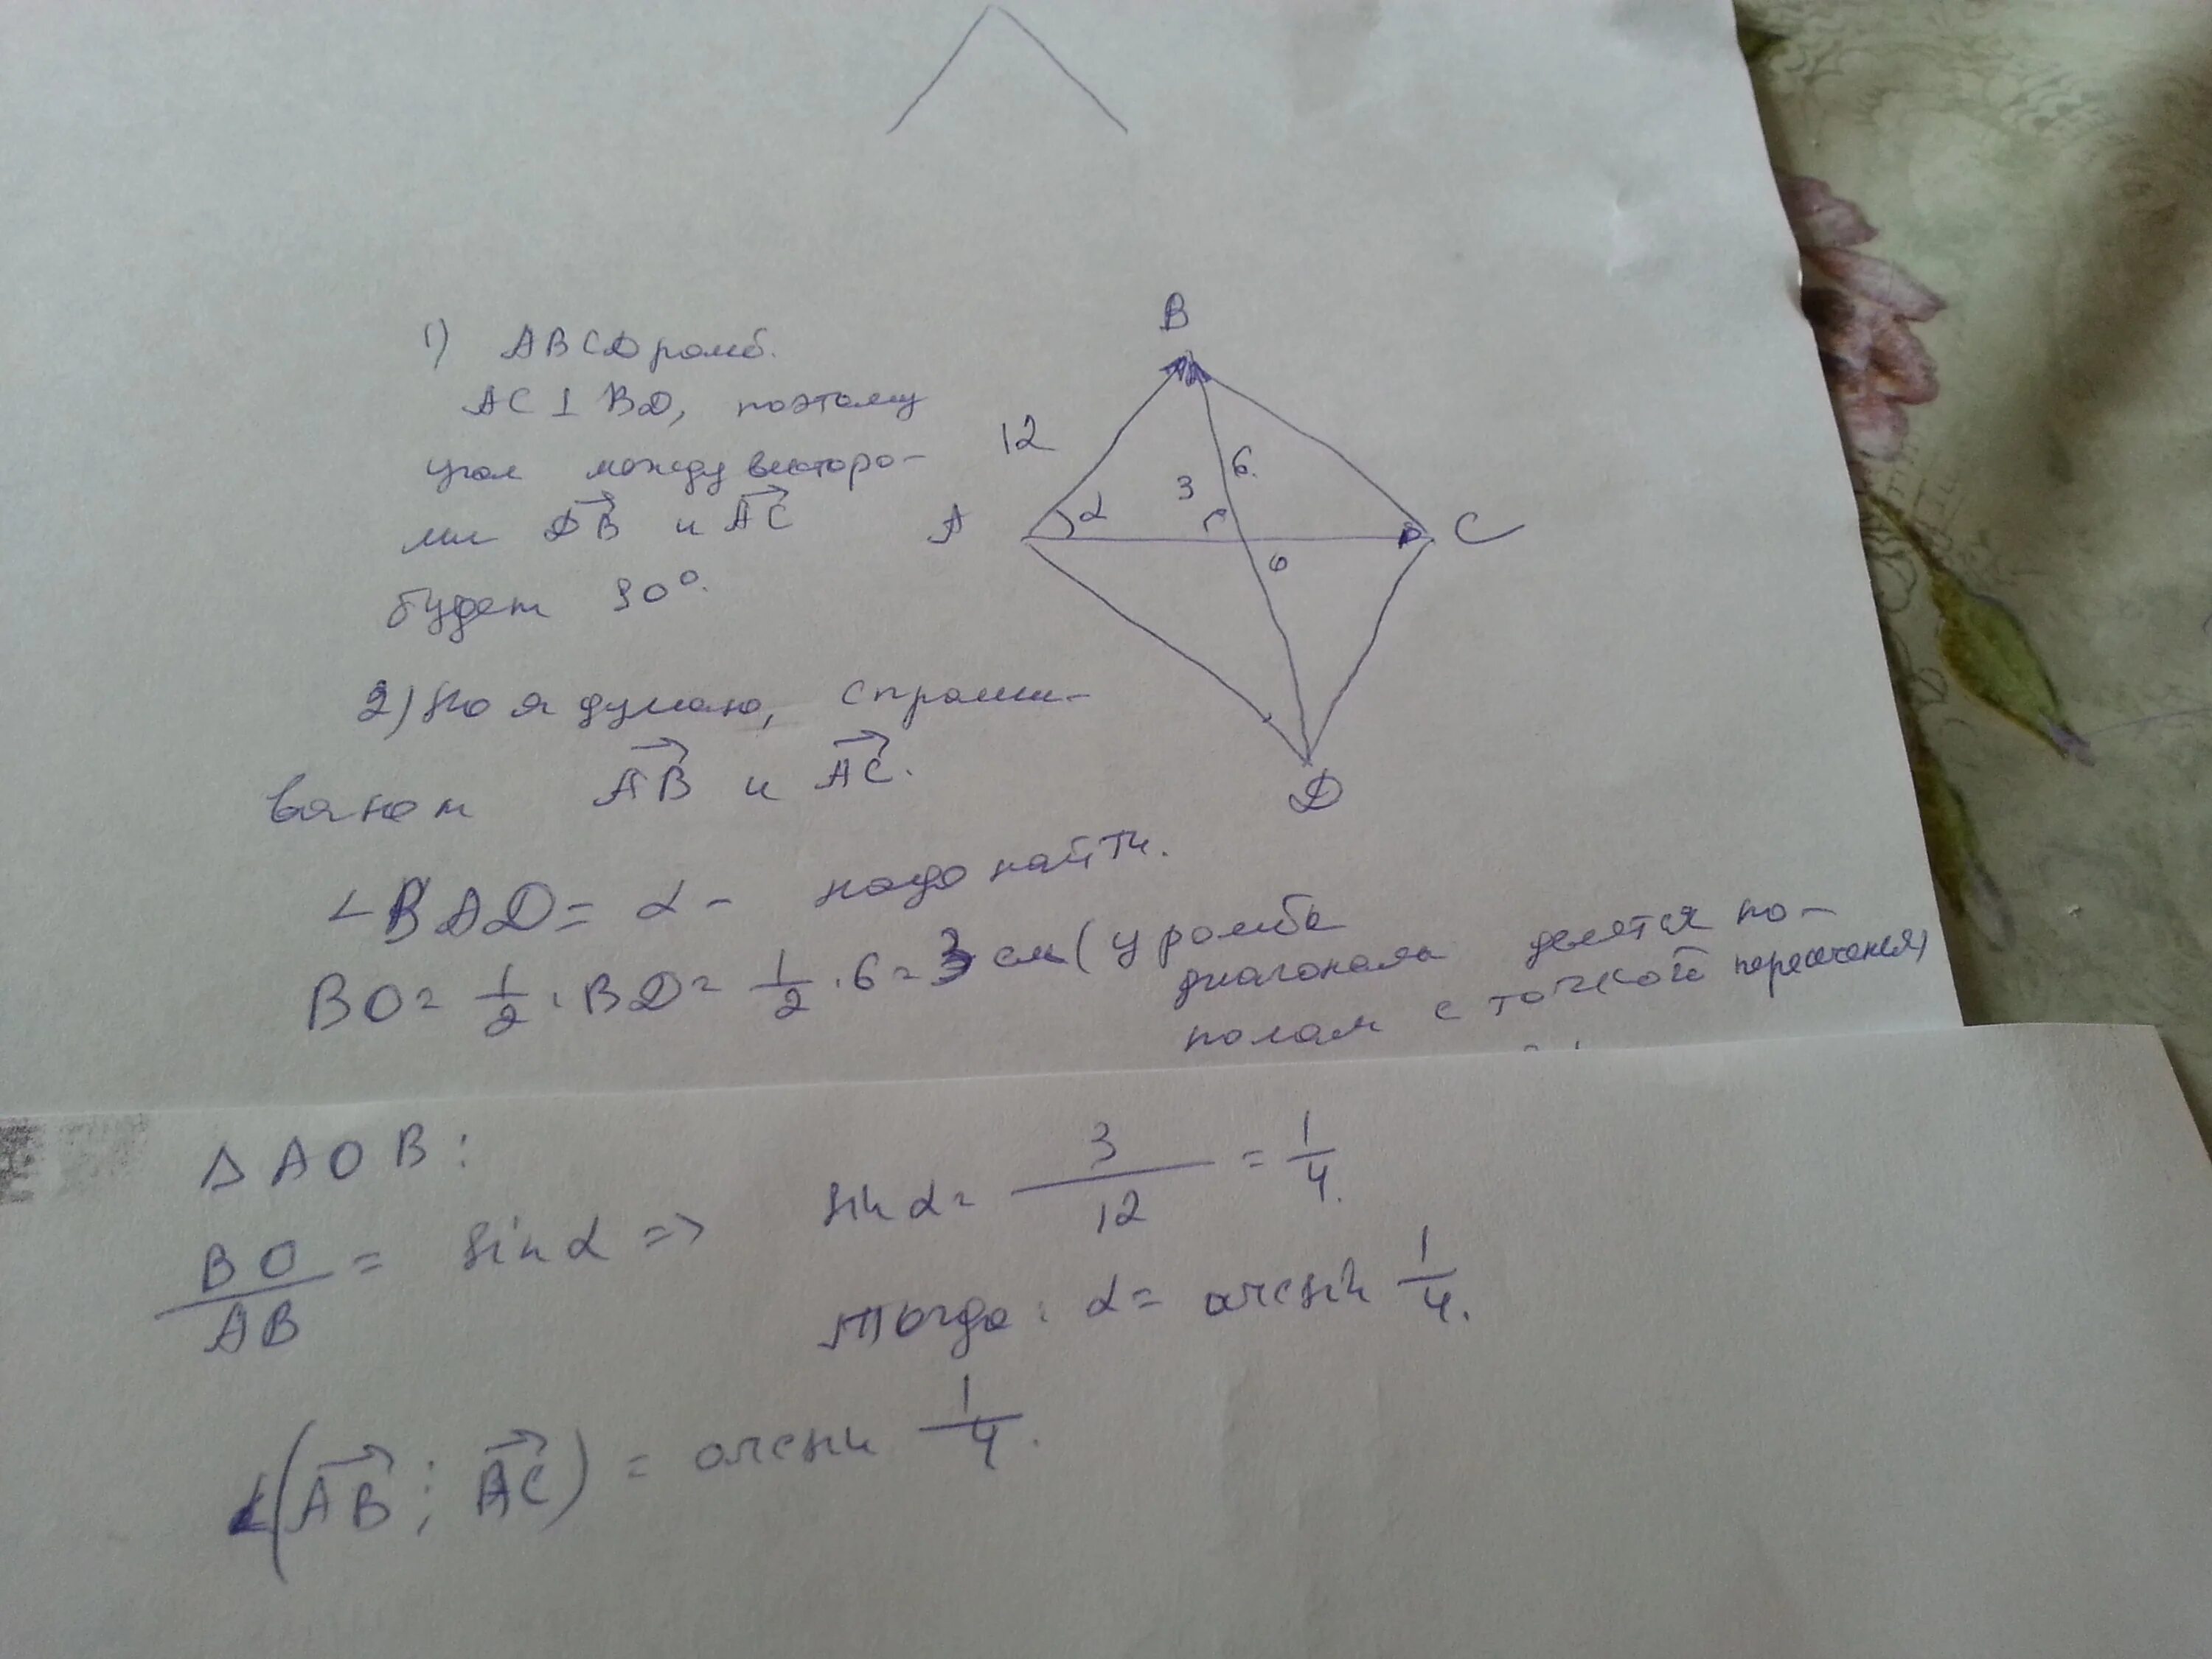 1) ABCD ромб.
AC ⊥ BD, поэтому
угол между векторо-
ми DB и AC
будет 90°.
B
12
6.
3
A
α
C
O
D
2) Но я думаю, спраши-
вают AB и AC.
∠BAD = α - надо найти.
BO = 1/2 · BD = 1/2 · 6 = 3 см (у ромба
диагонали делятся по-
полам с точкой пересечения)
Δ AOB:
BO/AB = sin α => sin α = 3/12 = 1/4.
Тогда: α = arcsin 1/4.
∠(AB ; AC) = arcsin 1/4.